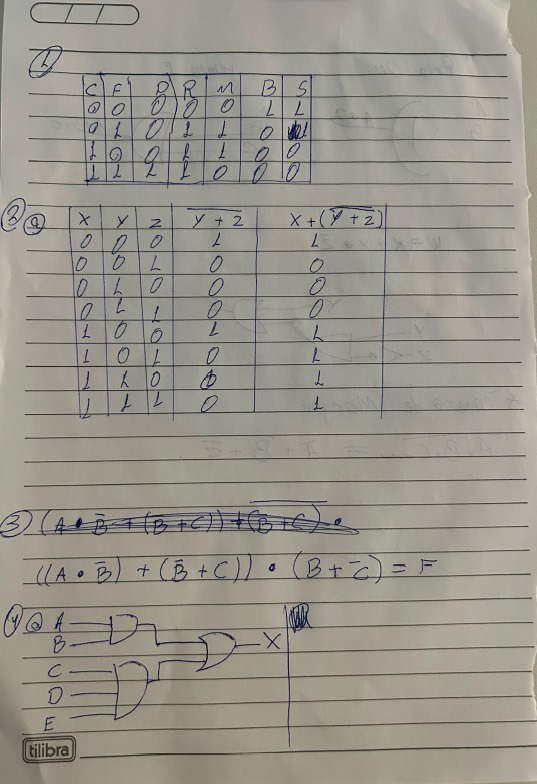 1)
C F D R M B S
0 0 0 0 0 1 1
0 1 0 1 1 0 1
1 0 0 1 1 0 0
1 1 1 1 0 0 0
2) a) X Y Z \overline{Y + Z} X + (\overline{Y + Z})
0 0 0 1 1
0 0 1 0 0
0 1 0 0 0
0 1 1 0 0
1 0 0 1 1
1 0 1 0 1
1 1 0 0 1
1 1 1 0 1
3) (A • B̄ + (B̄ + C)) + (\overline{B + C}) •
((A • B̄) + (B̄ + C)) • (B + C̄) = F
4) a) A
B
X
C
D
E
tilibra